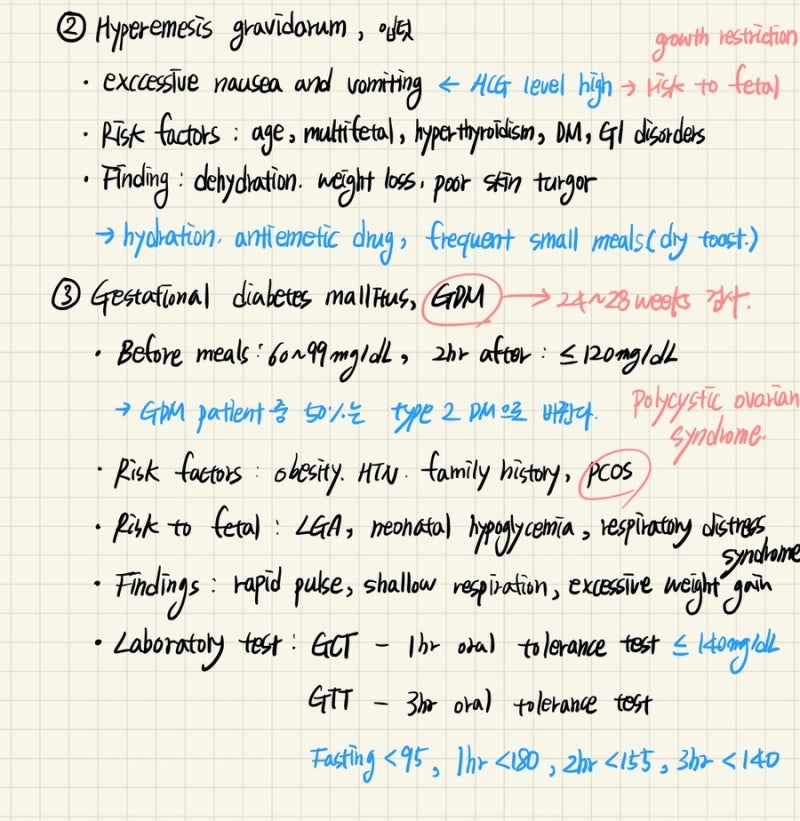 ② Hyperemesis gravidarum, 입덧
growth restriction
· exccessive nausea and vomiting ← HCG level high → risk to fetal
· Risk factors : age, multifetal, hyperthyroidism, DM, GI disorders
· Finding : dehydration. weight loss, poor skin turgor
→ hydration. antiemetic drug, frequent small meals(dry toast.)
③ Gestational diabetes mallitus, GDM → 24~28 weeks 검사.
· Before meals : 60~99mg/dL, 2hr after : ≤120mg/dL
→ GDM patient 중 50%는 type 2 DM으로 바뀐다.
Polycystic ovarian
syndrome.
· Risk factors : obesity. HTN. family history, PCOS
· Risk to fetal : LGA, neonatal hypoglycemia, respiratory distress
syndrome
· Findings : rapid pulse, shallow respiration, excessive weight gain
· Laboratory test : GCT - 1hr oral tolerance test ≤140mg/dL
GTT - 3hr oral tolerance test
Fasting <95, 1hr <180, 2hr <155, 3hr <140